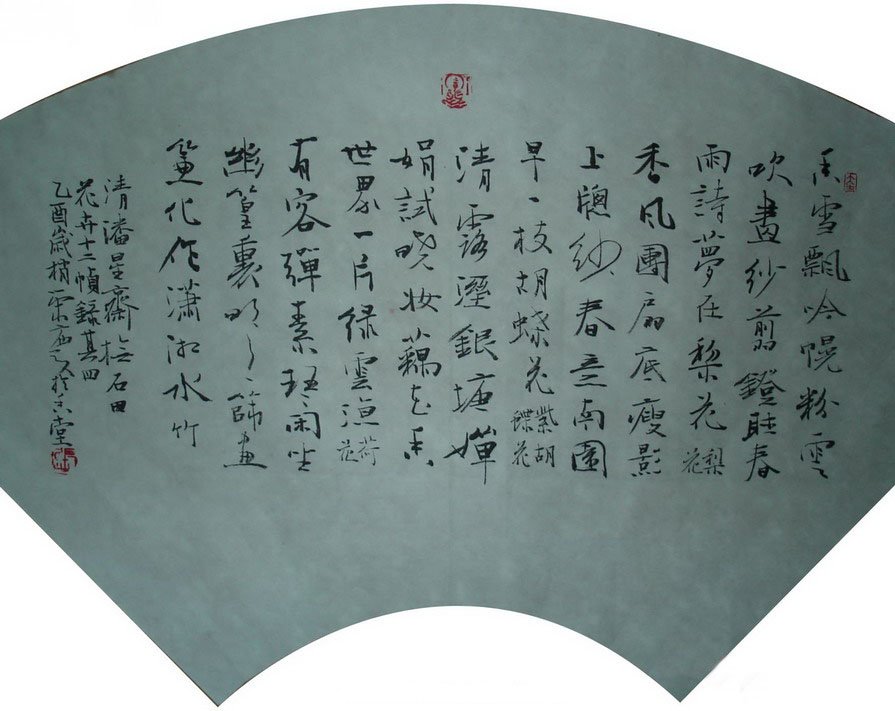 香雪飄吟幌粉雲
吹畫紗剪鐙聽春
雨詩夢在梨花梨花
香風團扇底瘦影
上牕紗春至南園
早一枝胡蝶花紫胡蝶花
清露溼銀塘嬋
娟試曉妝藕花香
世界一片綠雲涼荷花
有客彈素琴閑坐
幽篁裏明月篩畫
簾化作瀟湘水竹
清潘星齋橅石田
花卉十二幀錄其四
乙酉歲梢 堂